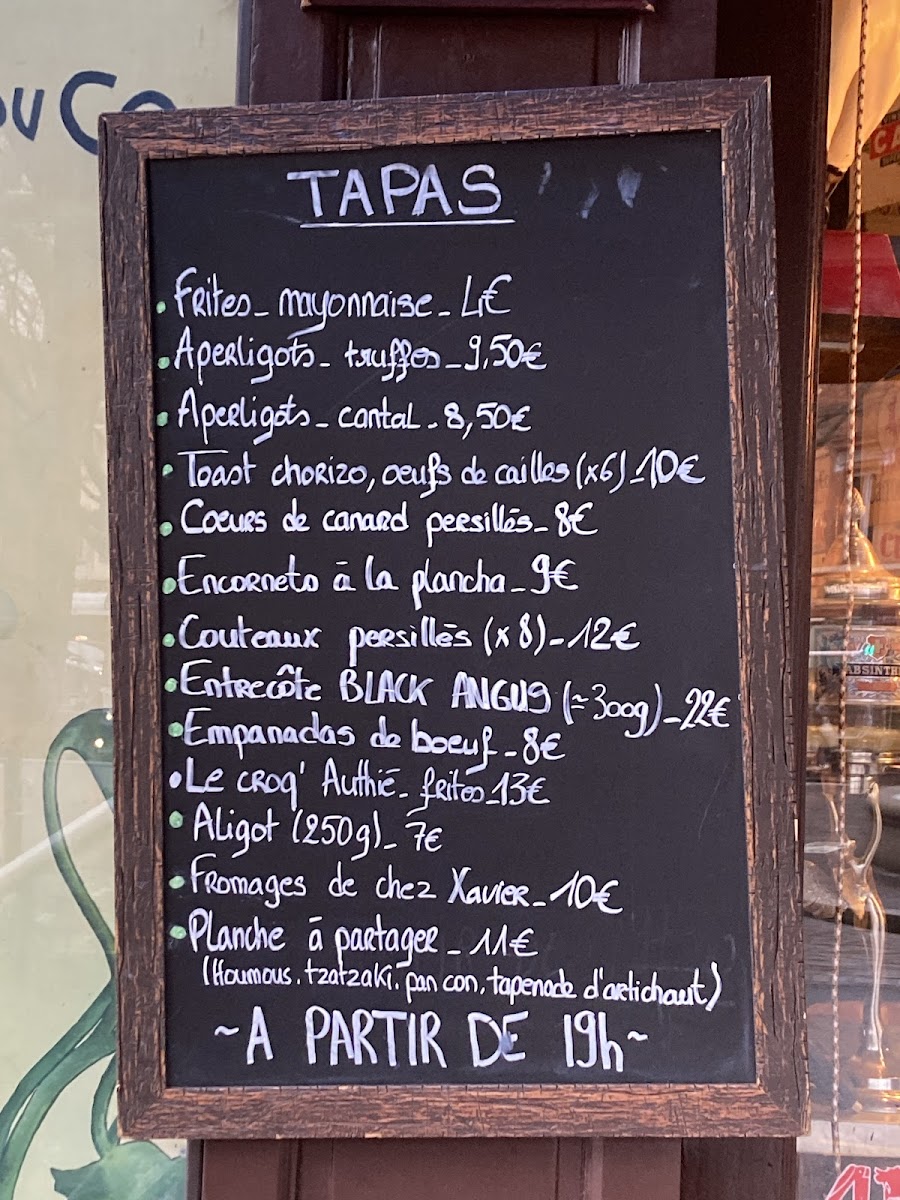 OU CO
TAPAS
• Frites - mayonnaise - 4€
• Aperligots - truffes - 9,50€
• Aperligots - cantal - 8,50€
• Toast chorizo, oeufs de cailles (x6) - 10€
• Coeurs de canard persillés - 8€
• Encornets à la plancha - 9€
• Couteaux persillés (x8) - 12€
• Entrecôte BLACK ANGUS (≃300g) - 22€
• Empanadas de boeuf - 8€
• Le croq' Authié - frites - 13€
• Aligot (250g) - 7€
• Fromages de chez Xavier - 10€
• Planche à partager - 11€
(Houmous. tzatzaki. pan con, tapenade d'artichaut)
~ A PARTIR DE 19h ~
ABSINTH